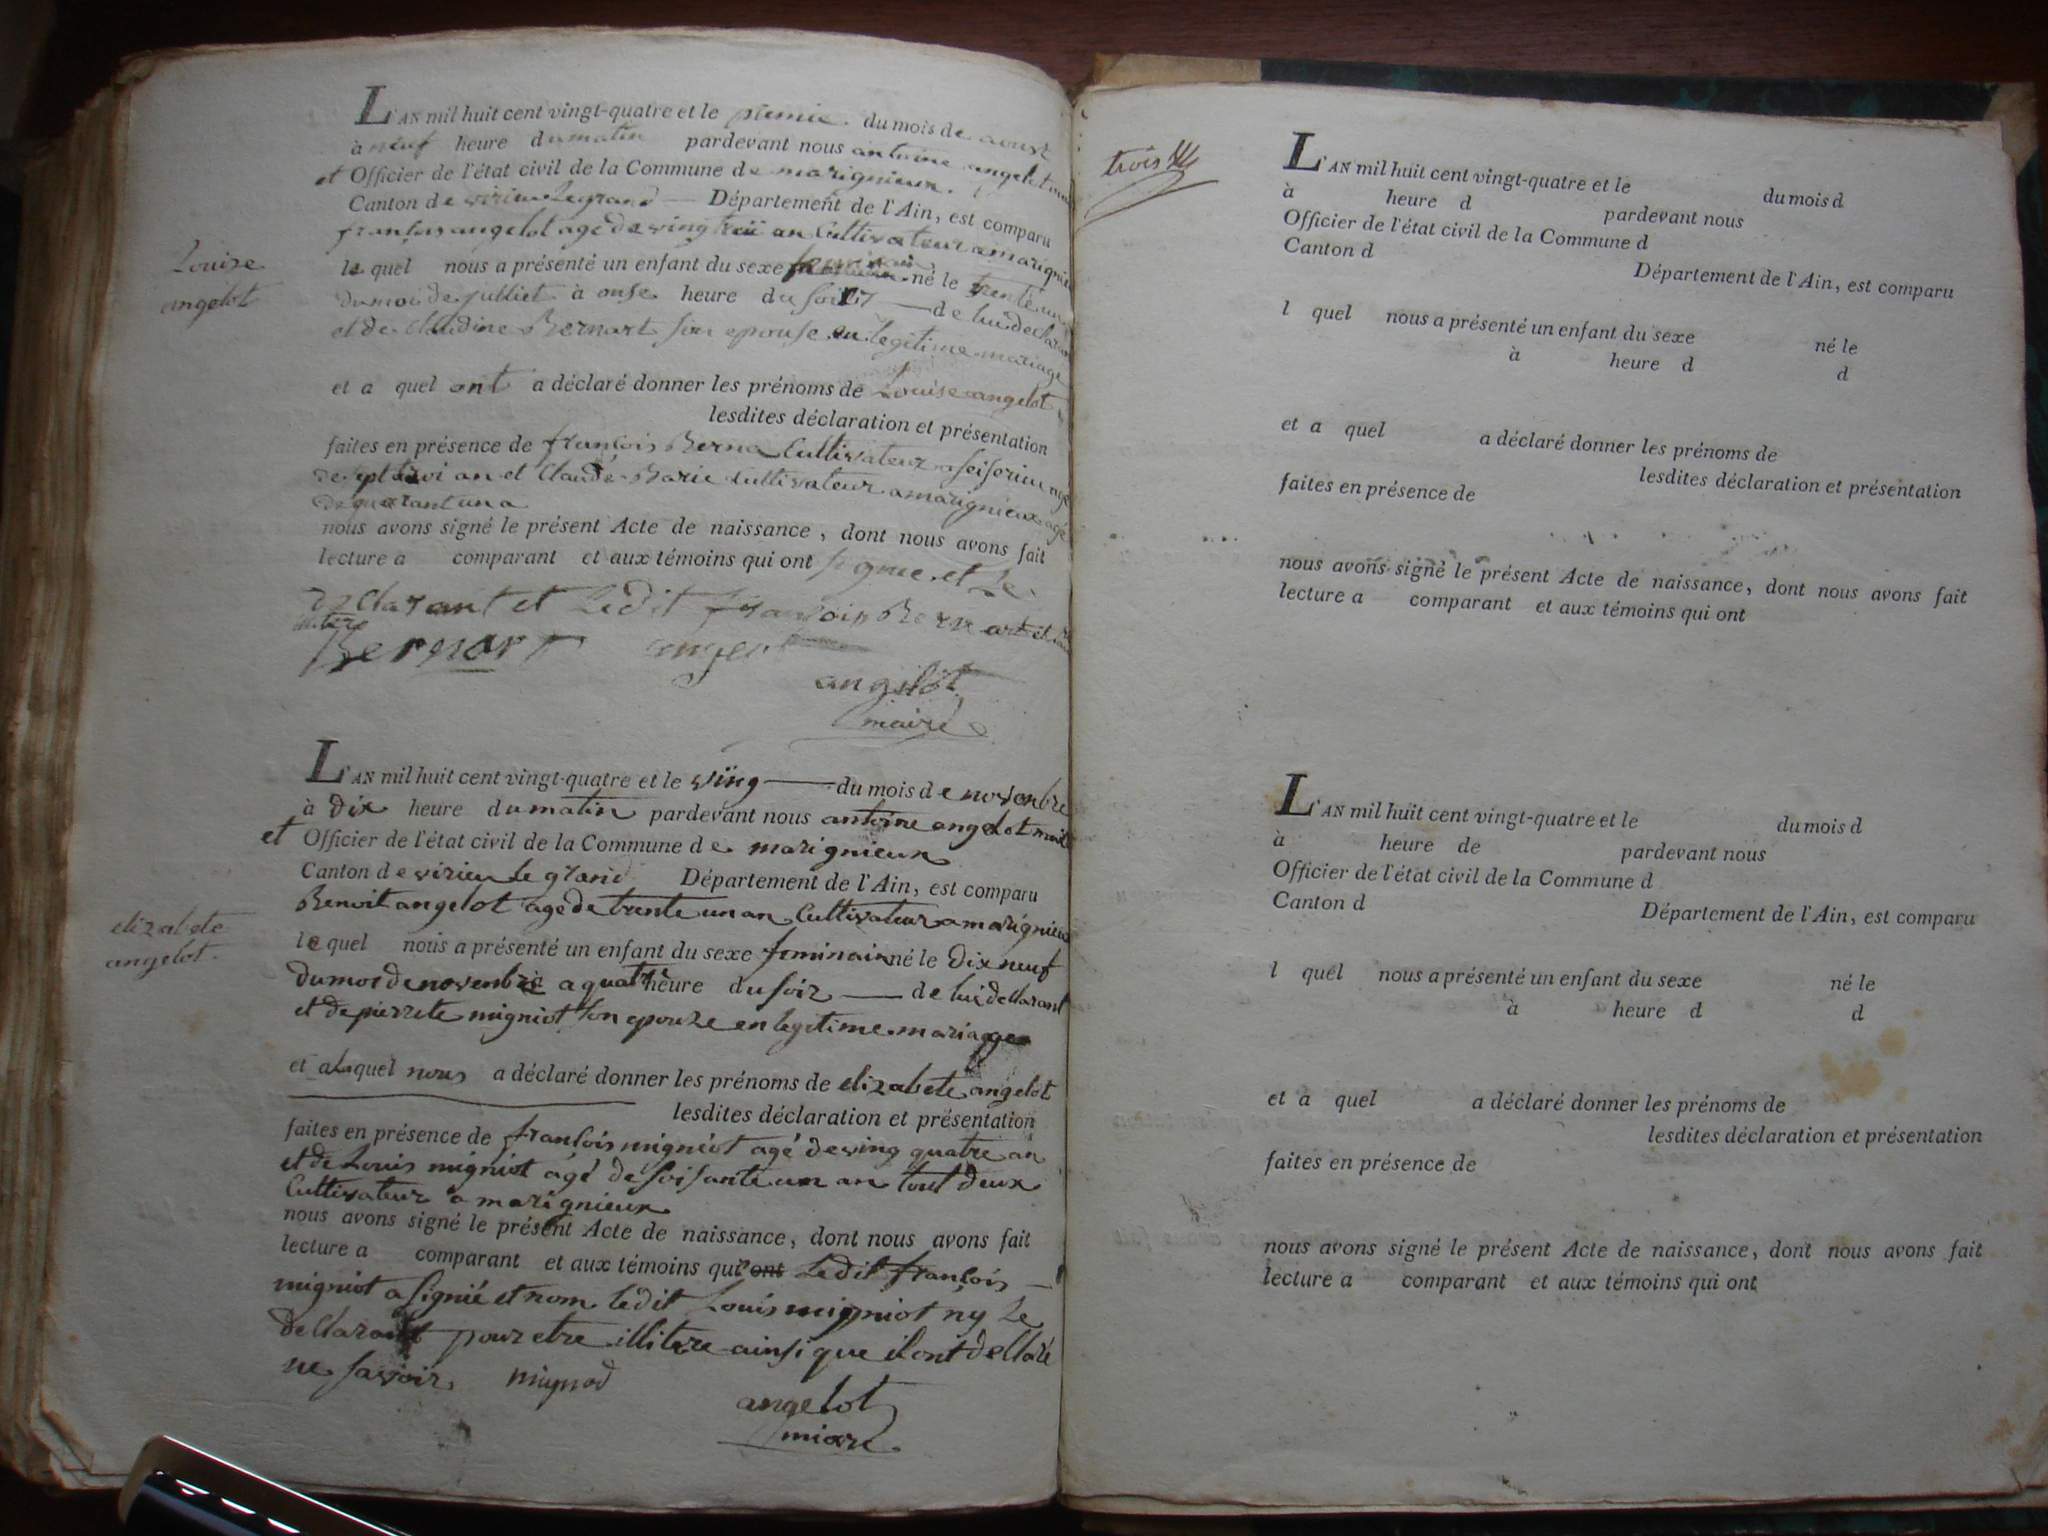 L'AN mil huit cent vingt-quatre et le premie du mois de aoust
à neuf heure du matin pardevant nous antoine angelot
et Officier de l'état civil de la Commune de marignieux
Canton de virieu Legrand — Département de l'Ain, est comparu
françois angelot agé de ving an Cultivateur a marignieu
Louise
angelot
le quel nous a présenté un enfant du sexe né le trente un
du moi de julliet à onse heure du soir — de lui declaran
et de Claudine Bernart son epouse en legitime mariage
et a quel ont a déclaré donner les prénoms de Louise angelot
lesdites déclaration et présentation
faites en présence de françois Berna Cultivateur a seiserieu agé
de an et Claude Barie Cultivateur a marignieux agé
de quarant un a
nous avons signé le présent Acte de naissance, dont nous avons fait
lecture a comparant et aux témoins qui ont signie et Le
declarant et Ledit françois Bernart et
Bernart
angelot
maire
L'AN mil huit cent vingt-quatre et le ving — du mois de novenbre
à dix heure du matin pardevant nous antoine angelot maire
et Officier de l'état civil de la Commune de marignieux
Canton de virieu le grand Département de l'Ain, est comparu
Benoit angelot age de trente un an Cultivateur a marignieux
elizabete
angelot.
le quel nous a présenté un enfant du sexe feminain né le dix neuf
du moi de novenbre a quatre heure du soir — de lui dellarant
et de pierrete migniot son epouze en legitime mariage
et a laquel nous a déclaré donner les prénoms de elizabete angelot
lesdites déclaration et présentation
faites en présence de françois migniot agé de ving quatre an
et de Louis migniot agé de soisante un an tout deux
Cultivateur a marignieux
nous avons signé le présent Acte de naissance, dont nous avons fait
lecture a comparant et aux témoins qui ont Ledit françois —
migniot a signié et nom ledit Louis migniot ny Le
dellarant pour etre illitere ainsi que il ont dellaré
ne savoir mignod
angelot
miare
trois
L'AN mil huit cent vingt-quatre et le du mois d
à heure d pardevant nous
Officier de l'état civil de la Commune d
Canton d Département de l'Ain, est comparu
l quel nous a présenté un enfant du sexe né le
à heure d d
et a quel a déclaré donner les prénoms de
lesdites déclaration et présentation
faites en présence de
nous avons signé le présent Acte de naissance, dont nous avons fait
lecture a comparant et aux témoins qui ont
L'AN mil huit cent vingt-quatre et le du mois d
à heure de pardevant nous
Officier de l'état civil de la Commune d
Canton d Département de l'Ain, est comparu
l quel nous a présenté un enfant du sexe né le
à heure d d
et a quel a déclaré donner les prénoms de
lesdites déclaration et présentation
faites en présence de
nous avons signé le présent Acte de naissance, dont nous avons fait
lecture a comparant et aux témoins qui ont